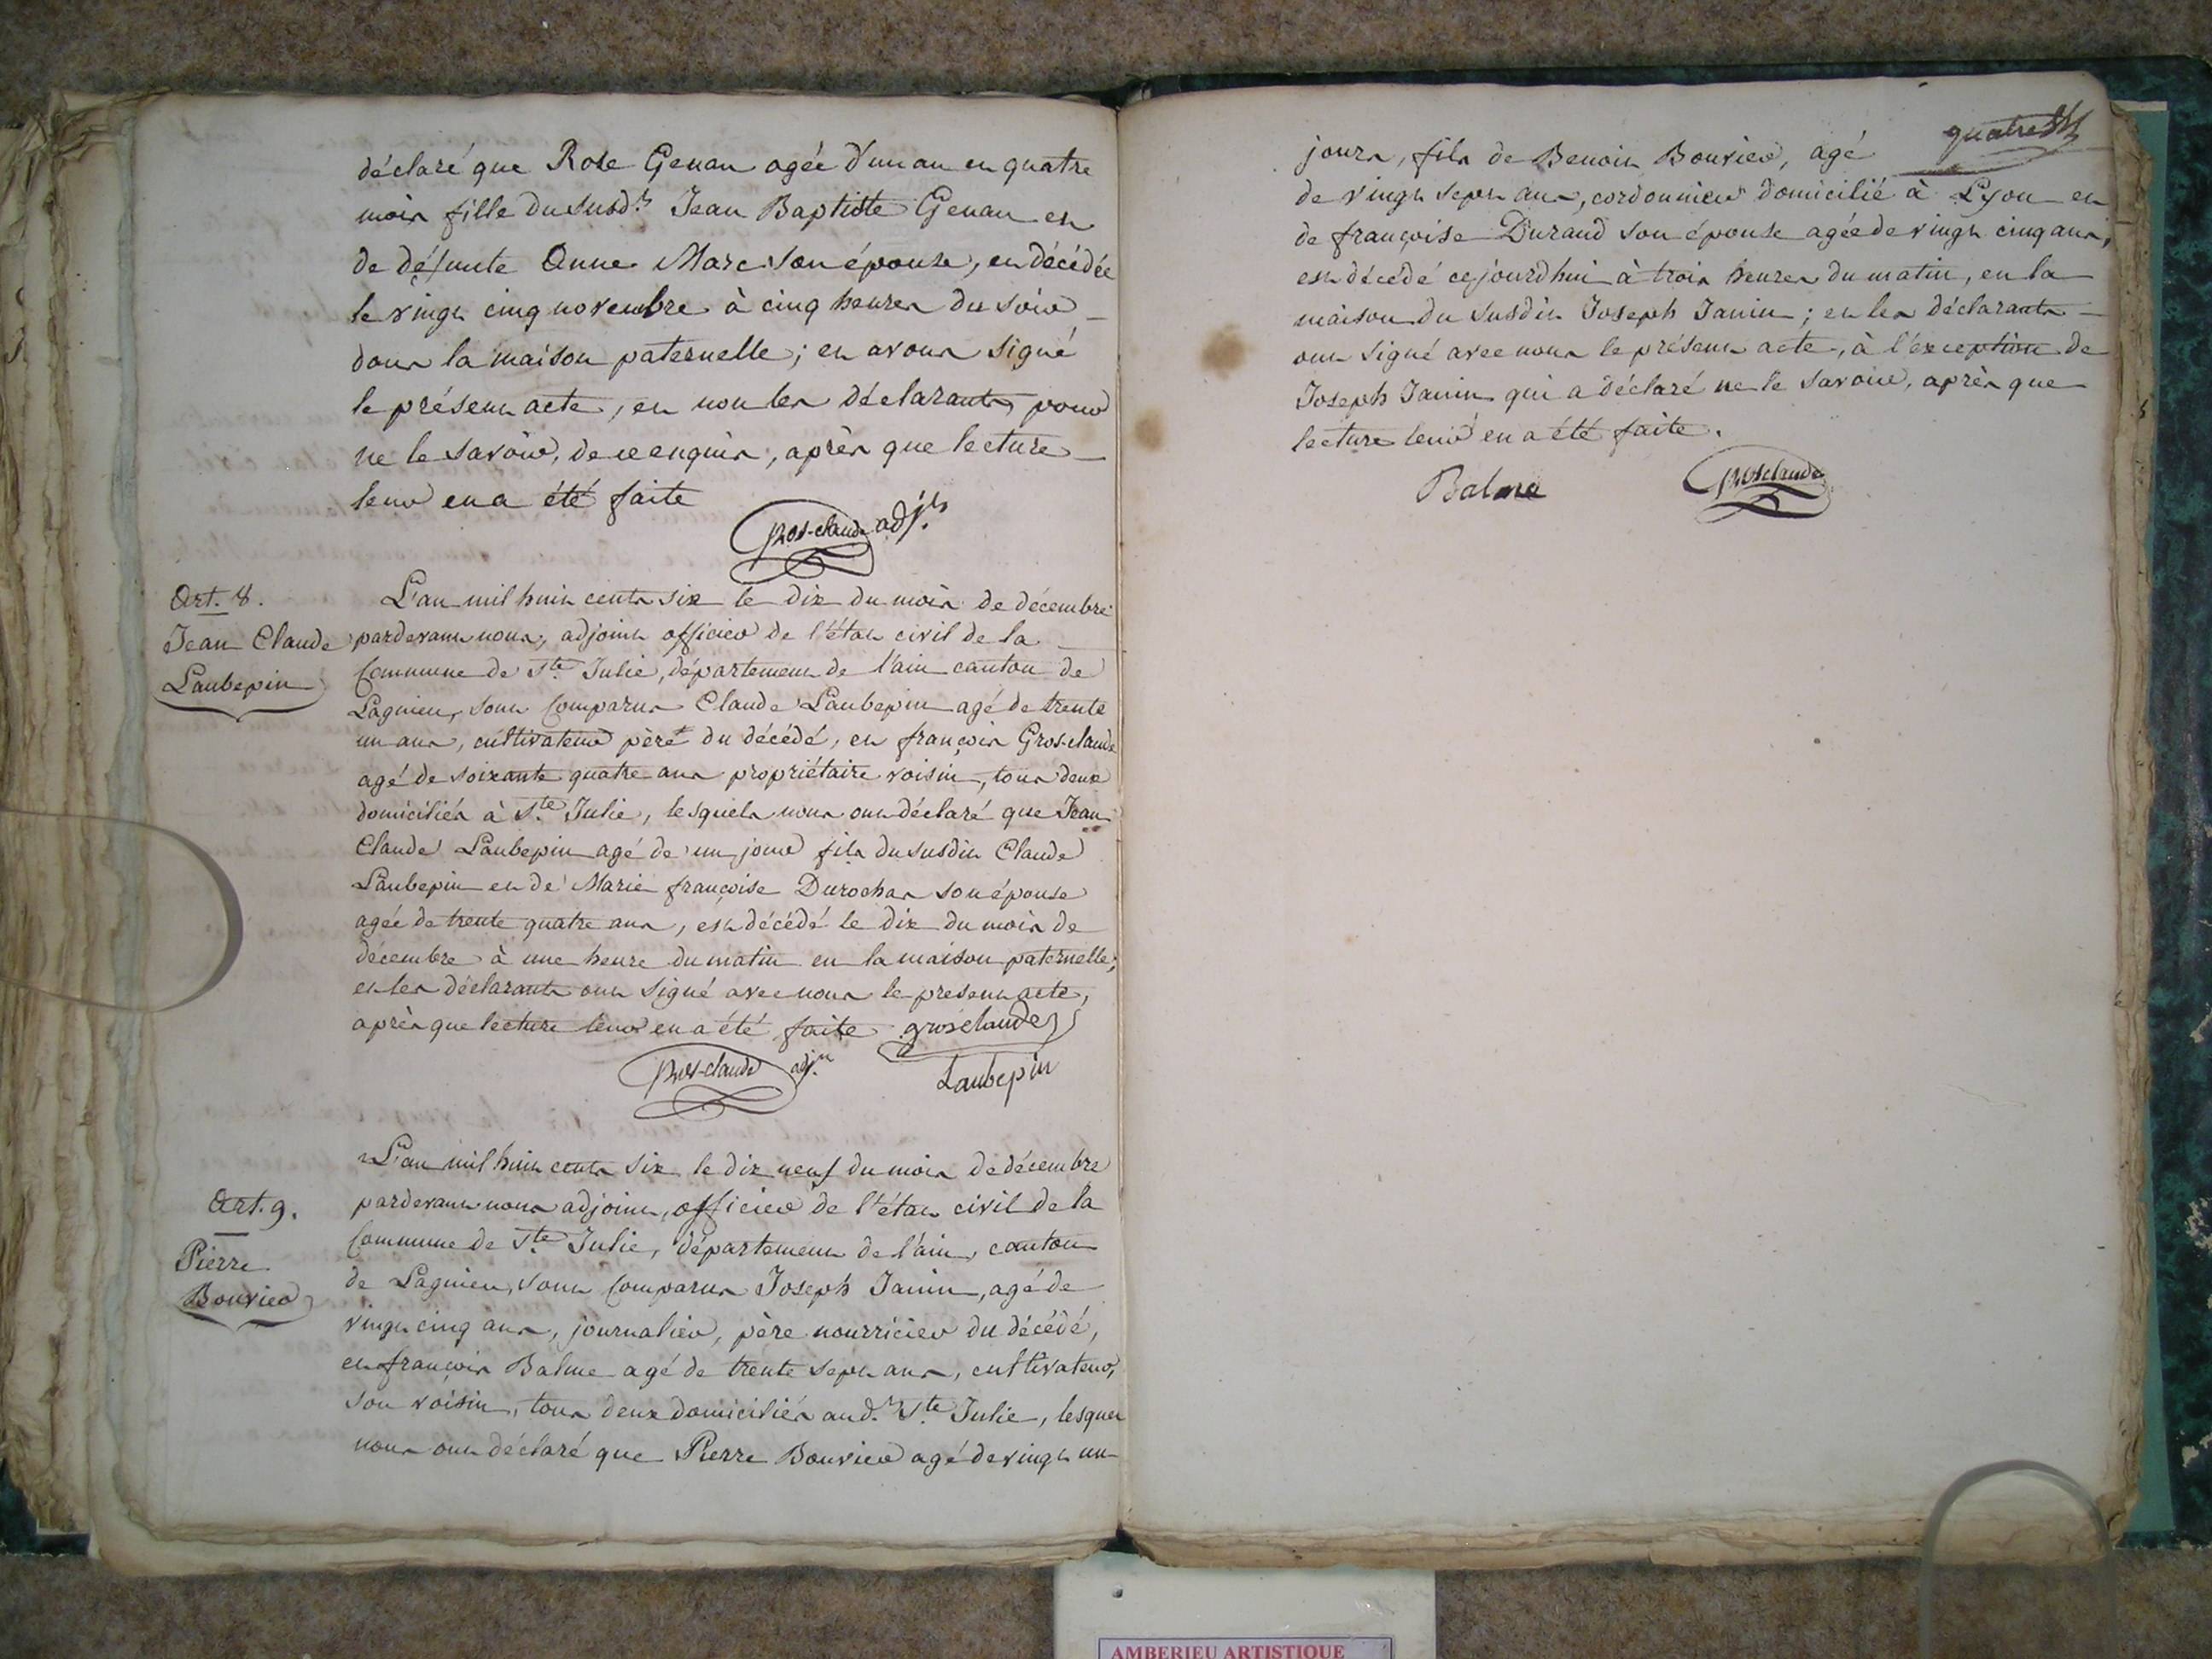 déclaré que Rose Genan agée d'un an et quatre
mois fille du susd.t Jean Baptiste Genan et
de défunte Anne Marc son épouse, est décédée
le vingt cinq novembre à cinq heures du soir
dans la maison paternelle; et avons signé
le présent acte, et non les déclarants, pour
ne le savoir, de ce enquis, après que lecture
leur en a été faite
Gros-claude adj.t
Art. 8.
Jean Claude
Laubepin
L'an mil huit cents six le dix du mois de décembre
pardevant nous, adjoint officier de l'état civil de la
Commune de Ste. Julie, département de l'ain canton de
Lagnieu, sont Comparus Claude Laubepin agé de trente
un ans, cultivateur père du décédé, et françois Gros-claude
agé de soixante quatre ans propriétaire voisin, tous deux
domiciliés à Ste. Julie, lesquels nous ont déclaré que Jean
Claude Laubepin agé de un jour fils du susdit Claude
Laubepin et de Marie françoise Durochas son épouse
agée de trente quatre ans, est décédé le dix du mois de
décembre à une heure du matin en la maison paternelle;
et les déclarants ont signé avec nous le présent acte,
après que lecture leur en a été faite grosclaude
Gros-claude adj.t Laubepin
Art. 9.
Pierre
Bouvier
L'an mil huit cents six le dix neuf du mois de décembre
pardevant nous adjoint, officier de l'état civil de la
Commune de Ste. Julie, département de l'ain, canton
de Lagnieu, sont Comparus Joseph Janin, agé de
vingt cinq ans, journalier, père nourricier du décédé,
et françois Balme agé de trente sept ans, cultivateur,
son voisin, tous deux domiciliés aud.t Ste. Julie, lesquels
nous ont déclaré que Pierre Bouvier agé de vingt un
quatre
jours, fils de Benoit Bouvier, agé
de vingt sept ans, cordonnier domicilié à Lyon et
de françoise Durand son épouse agée de vingt cinq ans,
est décédé cejourdhui à trois heures du matin, en la
maison du susdit Joseph Janin; et les déclarants
ont signé avec nous le présent acte, à l'exception de
Joseph Janin qui a déclaré ne le savoir, après que
lecture leur en a été faite.
Balme Grosclaude
AMBERIEU ARTISTIQUE